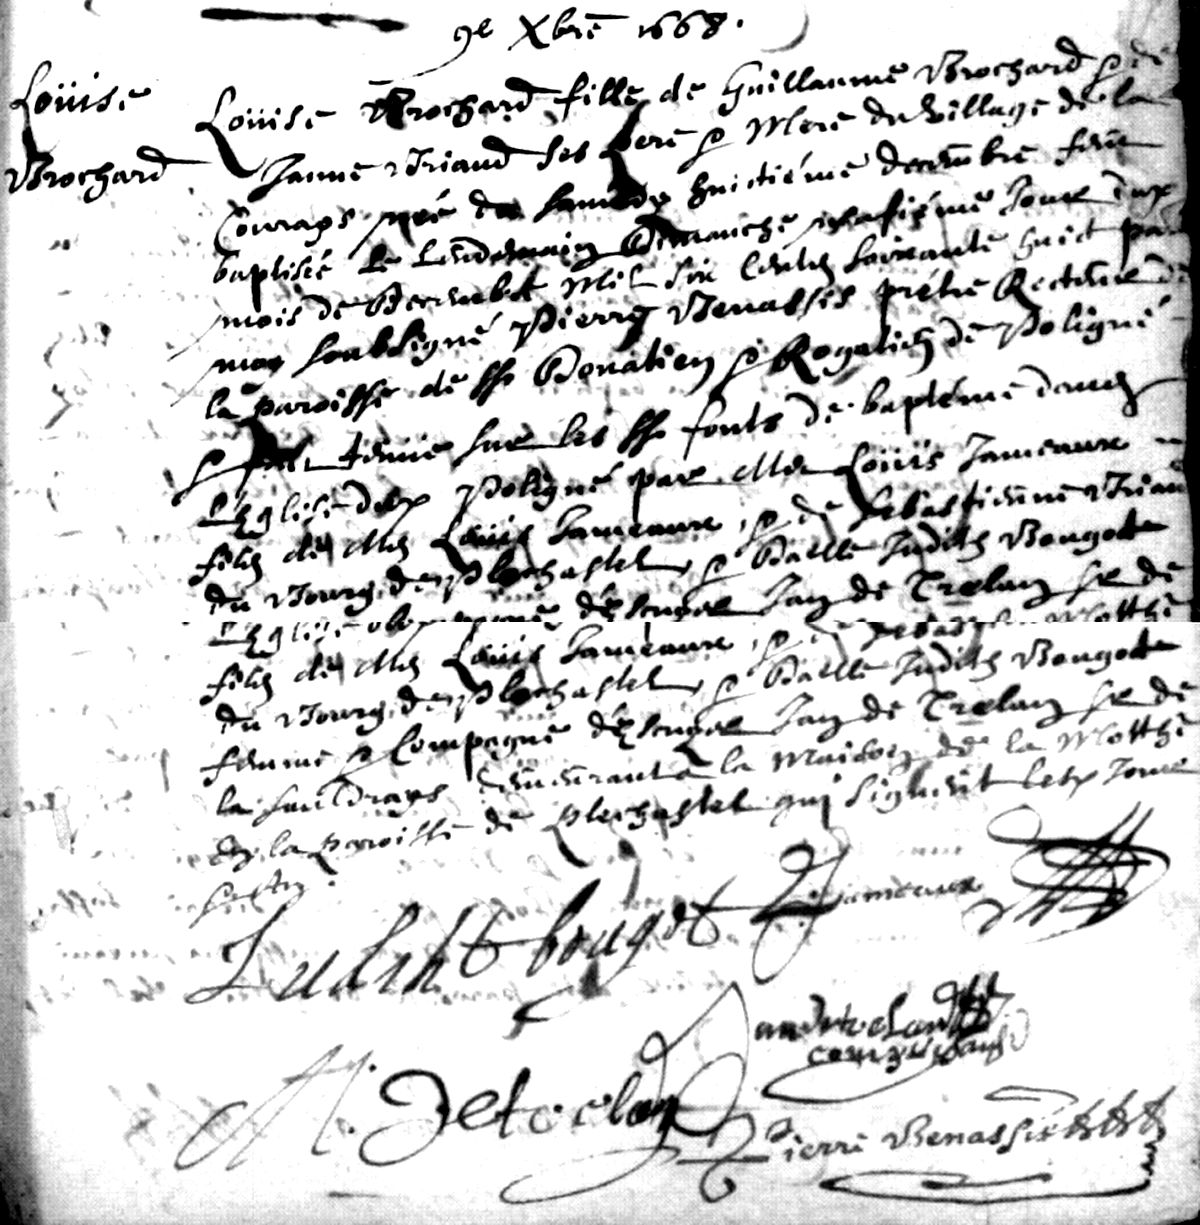 9e Xbre 1668.
Loüise
Brochard
Loüise Brochard fille de Guillaume Brochard & de
Janne Briand ses pere & Mere du village de la
Couraps née du samedy huictiéme decembre feut
baptisée le lendemain Dimanche jour dud
mois de Decembre Mil six Cents soixante huict par
moy soubsigné Pierre Benassis prétre Recteur de
la paroisse de sts Donatien & Rogatien de Poligné
& tenüe sur les sts fonts de baptéme dans
L'Eglise de Poligné par Me Loüis Jameaux
fils de Me Louis Jameaux & de Sebastienne Briand
du Bourg de Plechastel & Dalle Judith Bougot
de Jan de Trelan sr de
L'Eglise
fils de Me Louis Jameaux
du Bourg de Plechastel & Dalle Judith Bougot
femme & Compagne d'Escuyer Jan de Trelan sr de
la demeurant a la Maison de la Motthe
en la paroisse de Plechastel qui signent lesd Jour
Judith bougot Jameaux
Jan de trelan
M. De trelan
Pierre Benassis